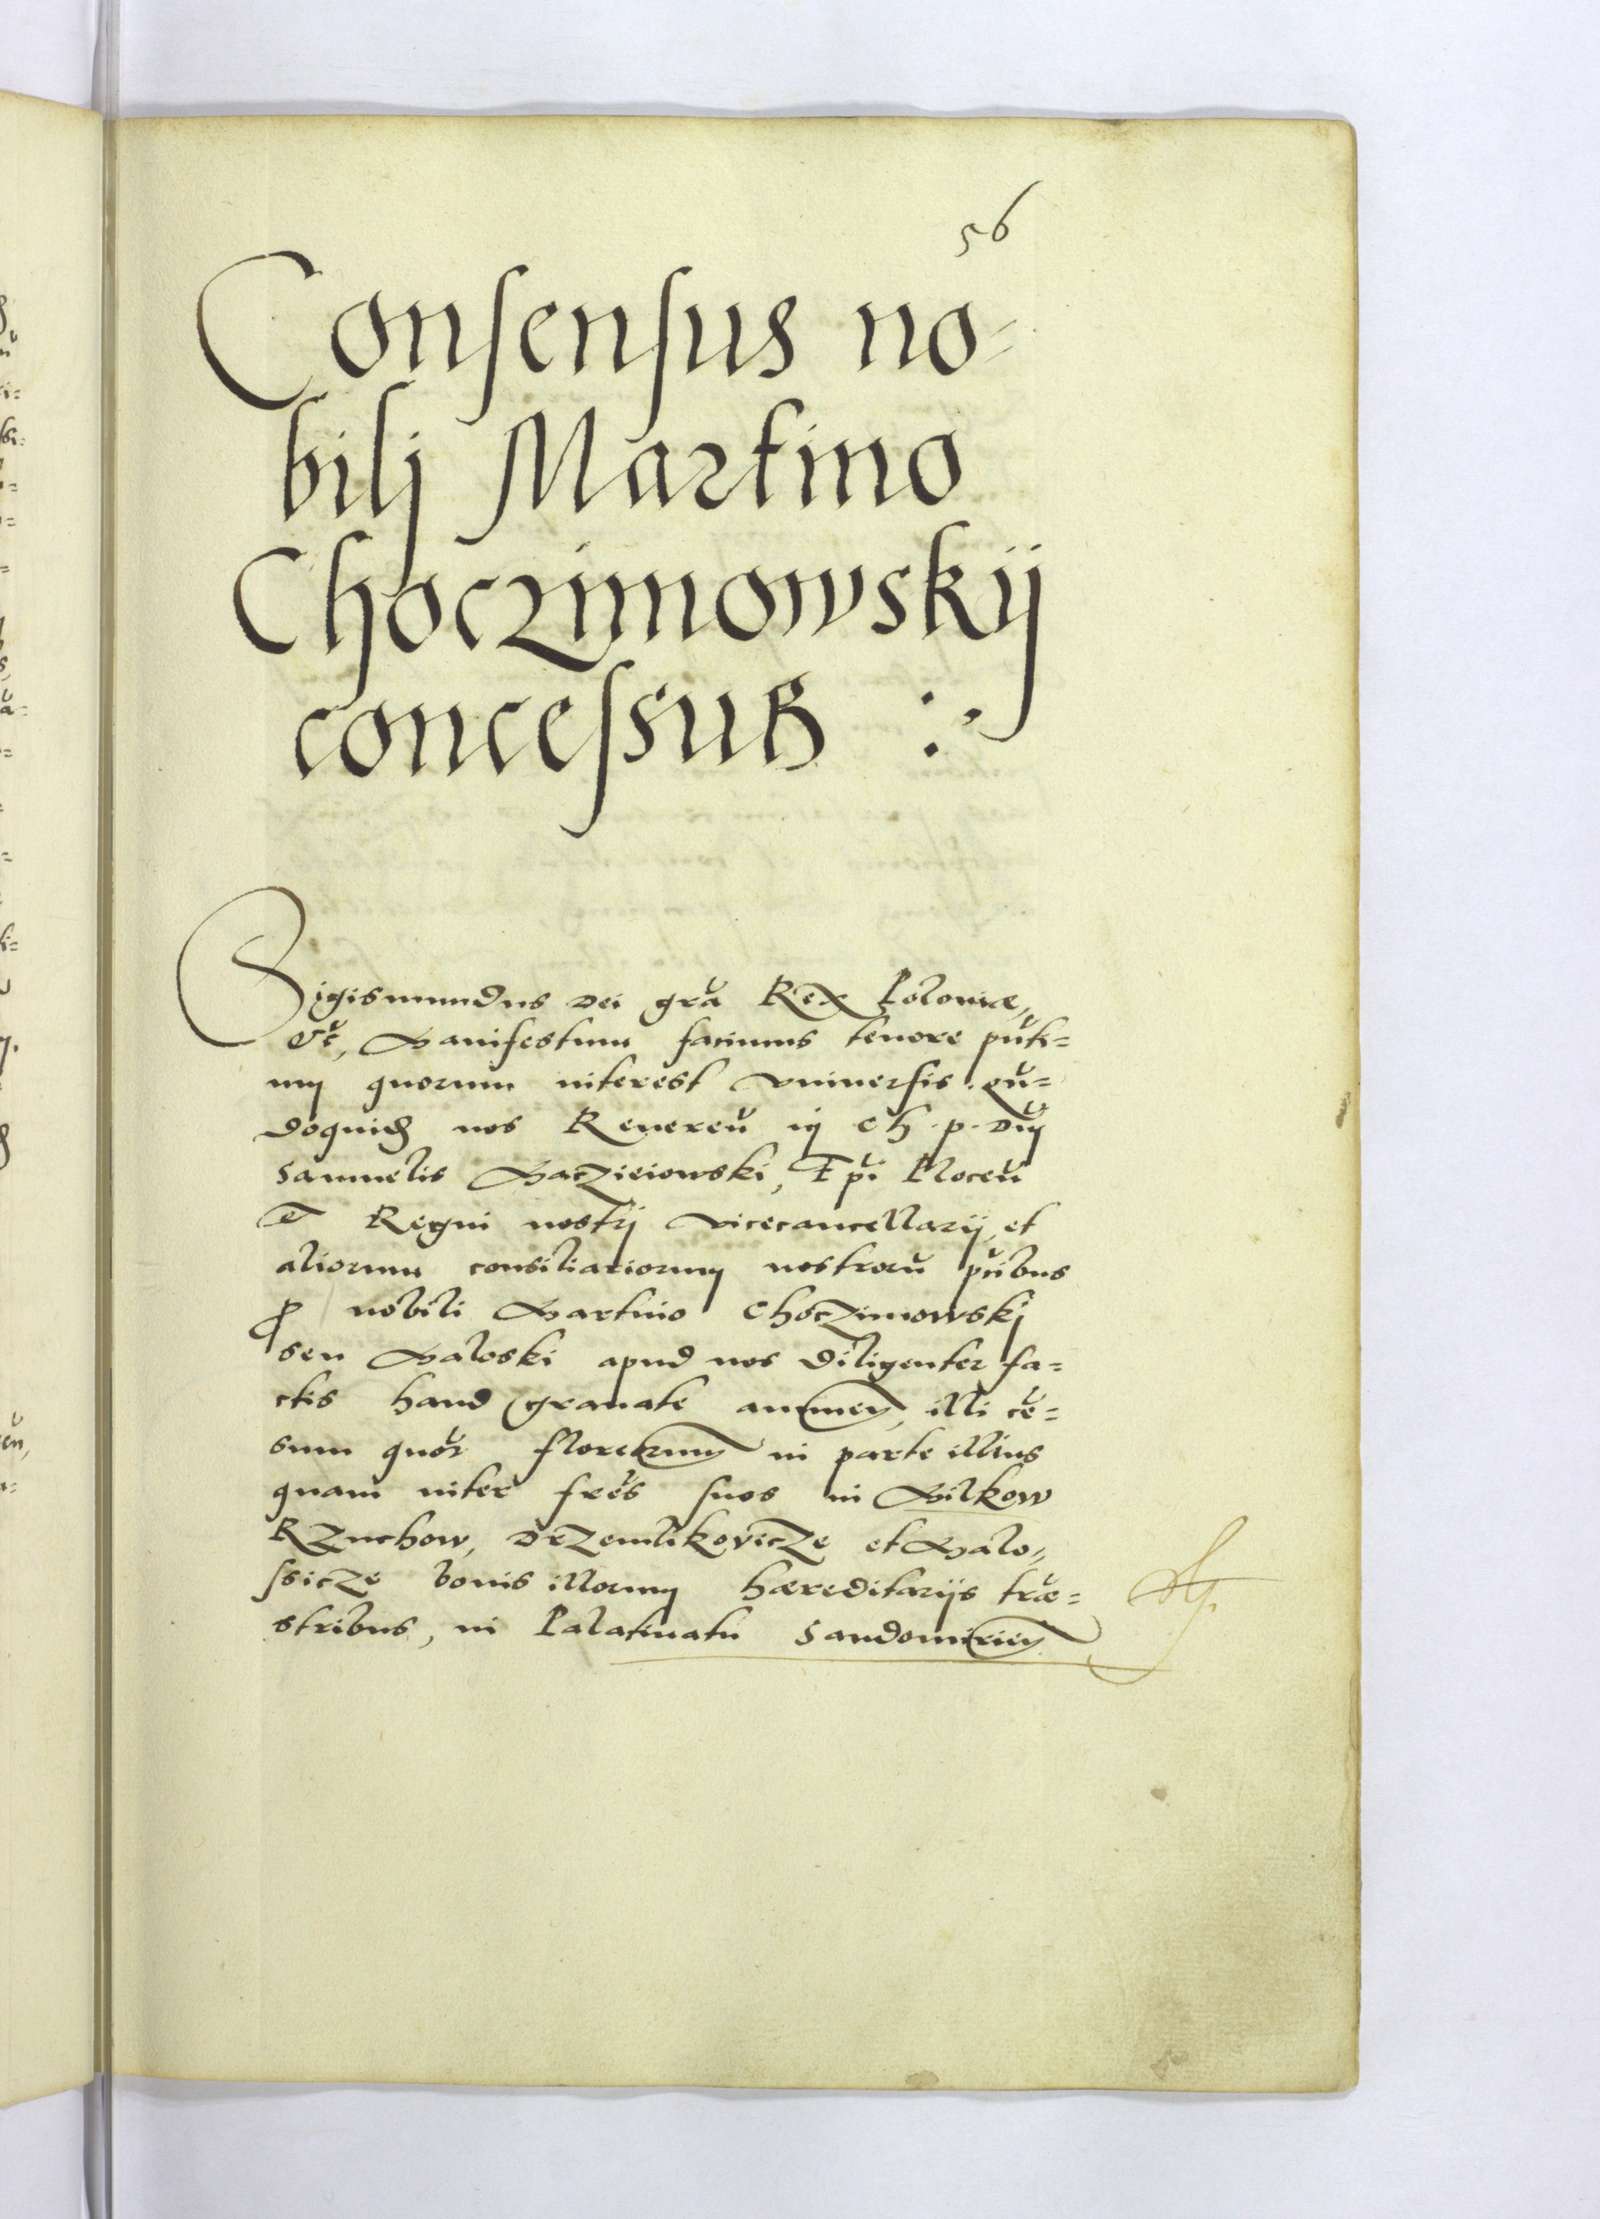 56
Consensus no-
bilj Martino
Choczimowskij
concessus :
Sigismundus Dei gra Rex Poloniæ,
&c, Manifestum facimus tenore pnti=
um quorum interest vniversis. Qn=
doquidem nos Reveren in Ch. p. Dni
Samuelis Maczieiowski, Epi Plocen
et Regni nostrj vicecancellarij, et
aliorum consiliariorum nostroru pcibus
p nobili Martino Choczimowskj
seu Maloski apud nos diligenter fa=
ctis haud gravate annuen, illi ce=
sum quor florenorum in parte illius
quam inter fres suos in Milkow
Rzuchow, Drzemlikovicze et Malo,,
ssicze bonis illorum hæreditarijs træ=
stribus, in Palatinatu Sandomirien